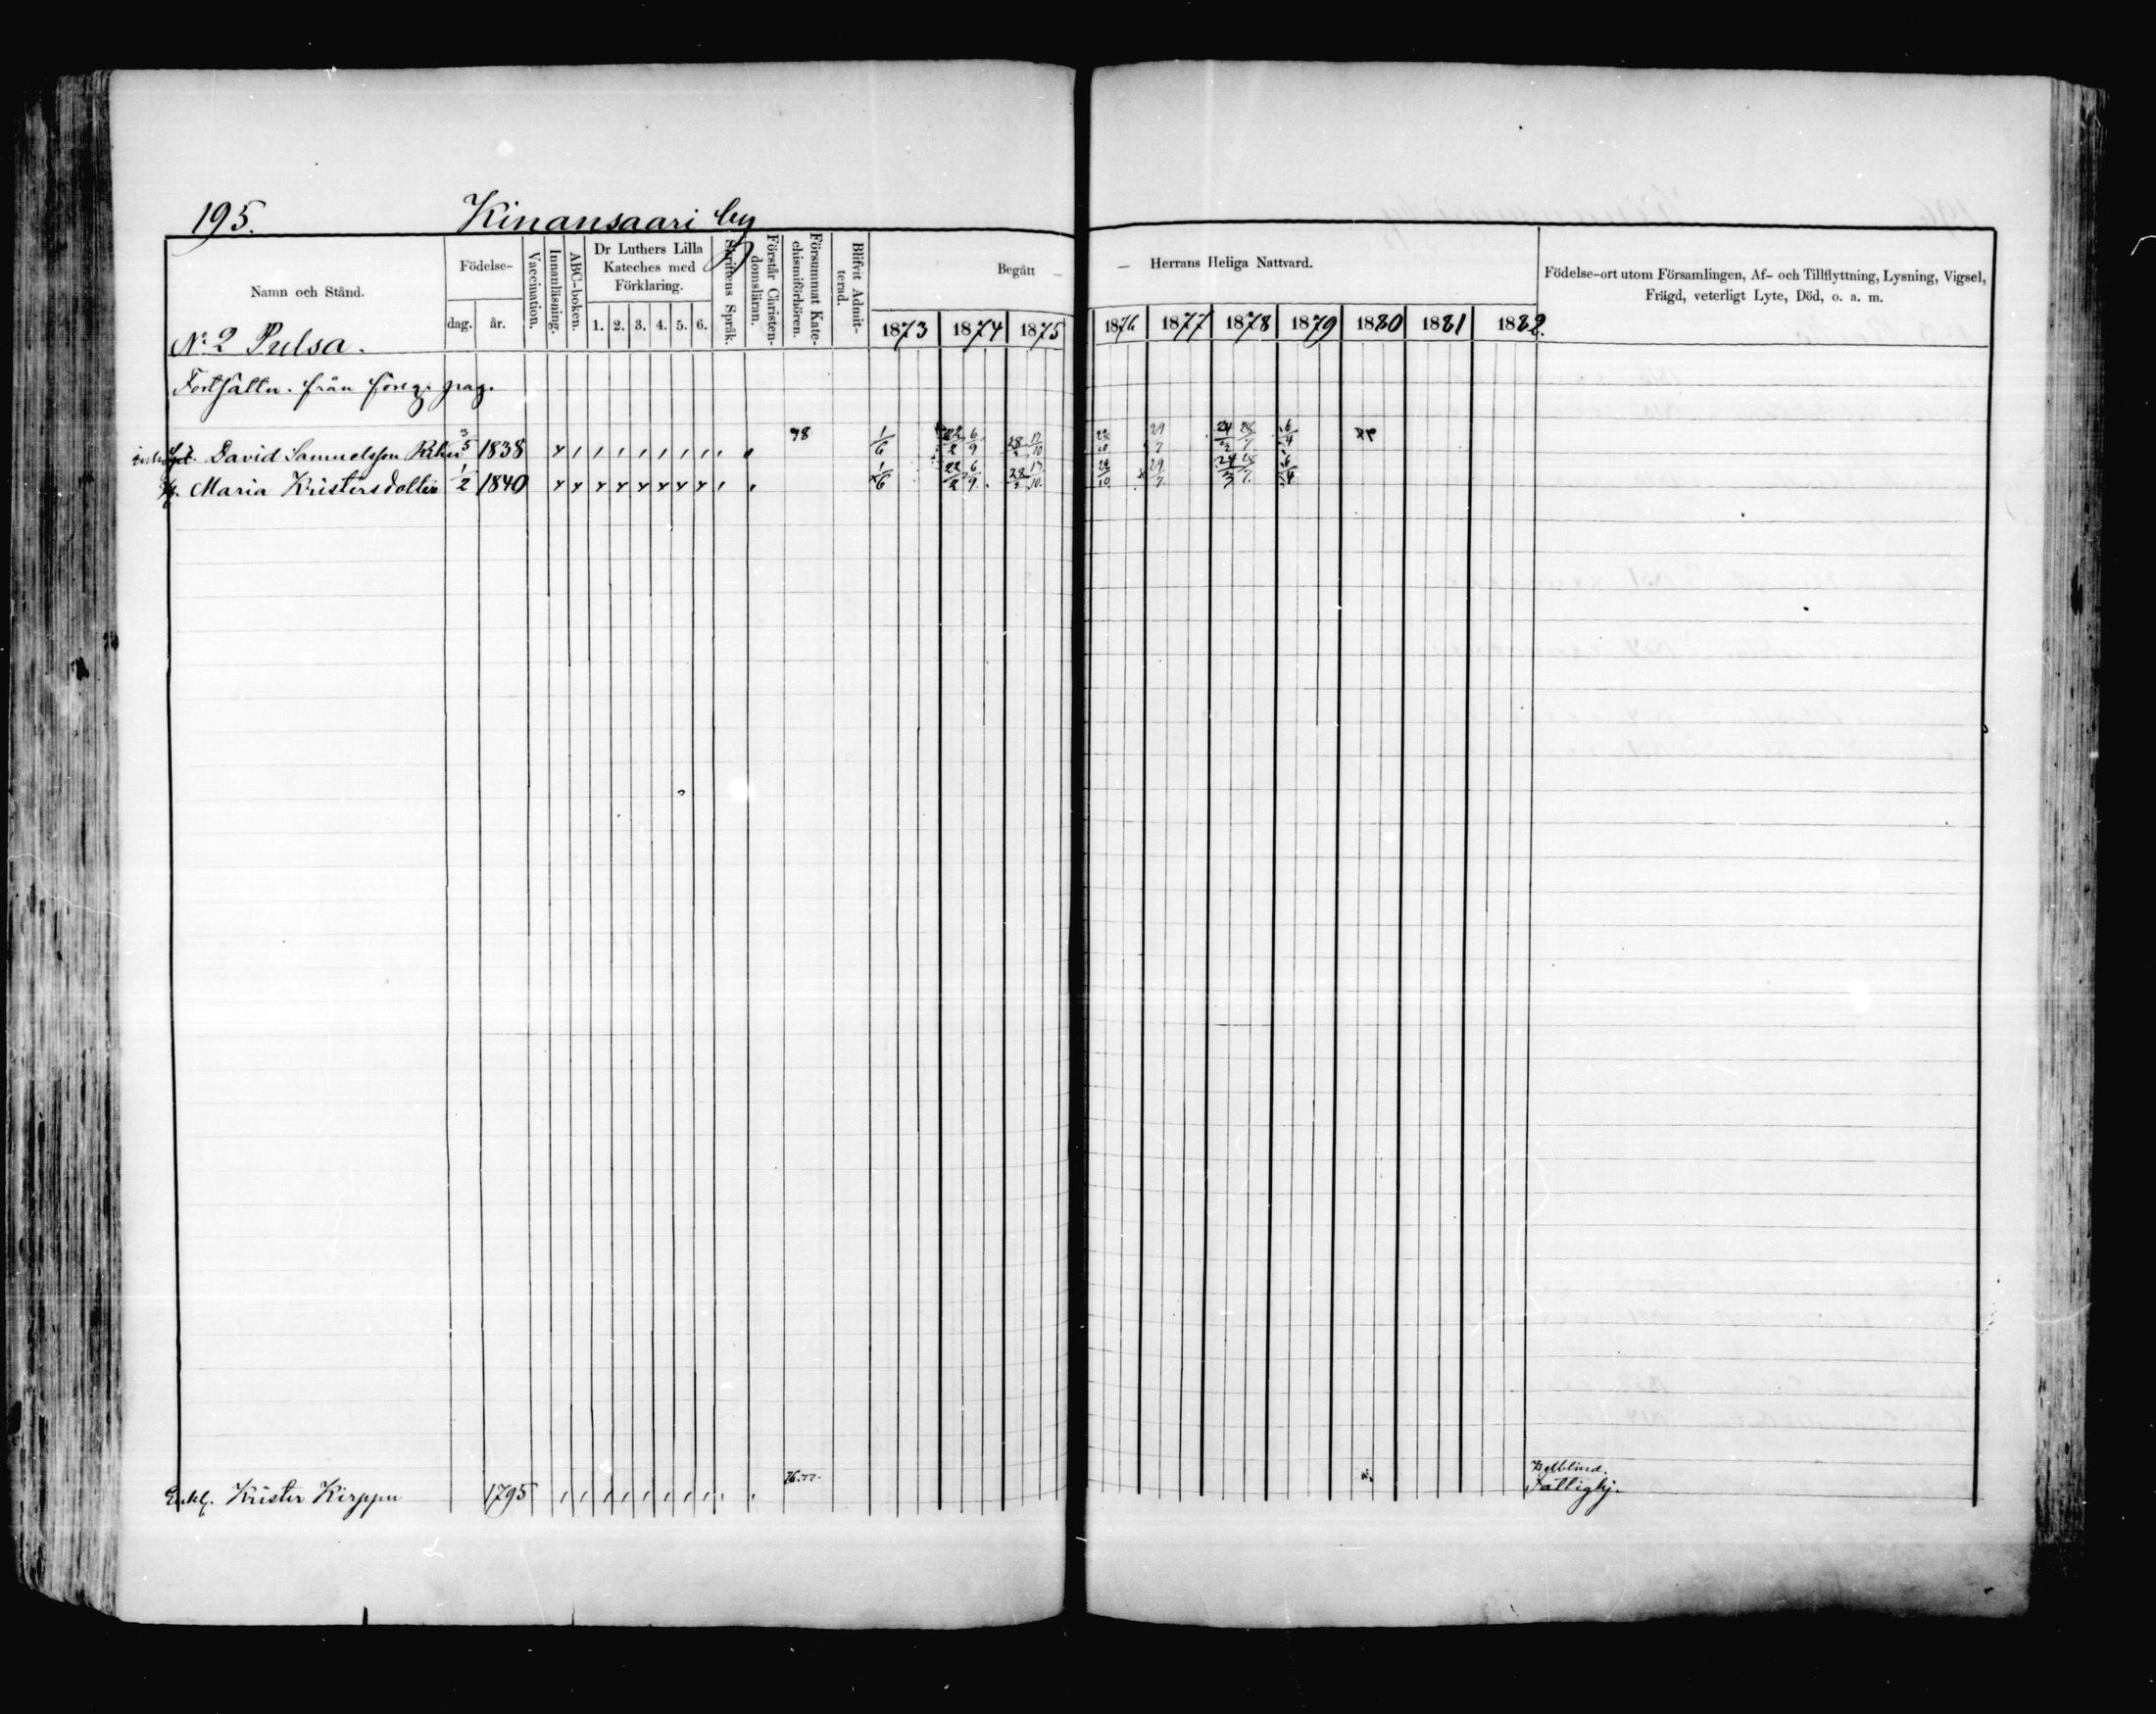 195. Kinansaari by
Namn och Stånd.
Födelse-
dag. år.
Vaccination.
Innanläsning.
ABC-boken.
Dr Luthers Lilla Kateches med Förklaring.
1. 2. 3. 4. 5. 6.
Skriftens Språk.
Förstår Christendomsläran.
Försummat Katechismiförhören.
Blifvit Admitterad.
Begått — — Herrans Heliga Nattvard.
1873 1874 1875 1876 1877 1878 1879 1880 1881 1882.
Födelse-ort utom Församlingen, Af- och Tillflyttning, Lysning, Vigsel,
Frägd, veterligt Lyte, Död, o. a. m.
No 2 Pulsa.
Fortsättn. från föreg. pag.
David Samuelsson 3/5 1838 78 1/6 22/2 6/9 17/10 29/7 28/7 6/4
Maria Kristersdotter 1/2 1840 1/6 22/2 6/9 28/2 17/10 28/10 29/7 24/3 28/7 6/4
Enkl. Krister Kirppu 1795 76.77. Helblind.
Fattighj.